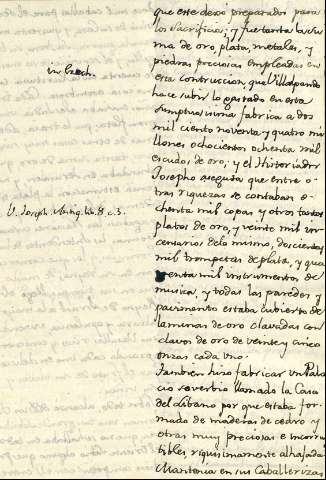 que este dexó preparados para
los Sacrificios; y fue tanta la su
ma de oro, plata, metales, y
piedras preciosas empleadas en
in Ezech.
esta Contruccion, que Villalpando
hace subir lo gastado en esta
sumptuosisima fabrica a dos
mil ciento noventa y quatro mi
llones ochocientos ochenta mil
escudos de oro; y el Historiador
Josepho asegura que entre o
tras riquezas se contaban o-
chenta mil copas y otros tantos
V. Joseph. Antiq. lib. 8. c. 3.
platos de oro, y veinte mil in-
censarios de lo mismo, doscientas
mil trompetas de plata, y qua
renta mil instrumentos de
musica, y todas las paredes y
pavimento estaba cubierto de
laminas de oro clavadas con
clavos de oro de veinte y cinco
onzas cada uno.
Tambien hizo fabricar un Pala
cio sovervio llamado la Casa
del Libano por que estaba for-
mada de maderas de cedro y
otras muy preciosas e incorru
tibles, riquisimamente alhajada
Mantenia en sus Caballerizas